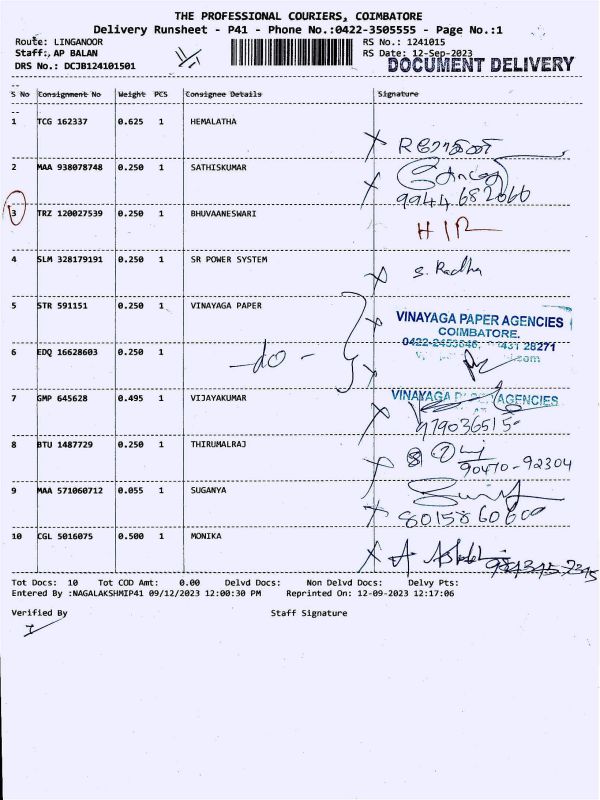 THE PROFESSIONAL COURIERS, COIMBATORE
Delivery Runsheet - P41 - Phone No.:0422-3505555 - Page No.:1
Route: LINGANOOR RS No.: 1241015
Staff:, AP BALAN RS Date: 12-Sep-2023
DRS No.: DCJB124101501 DOCUMENT DELIVERY
S No Consignment No Weight PCS Consignee Details Signature
1 TCG 162337 0.625 1 HEMALATHA
2 MAA 938078748 0.250 1 SATHISKUMAR
9944682066
3 TRZ 120027539 0.250 1 BHUVAANESWARI H/R
4 SLM 328179191 0.250 1 SR POWER SYSTEM S. Radha
5 STR 591151 0.250 1 VINAYAGA PAPER VINAYAGA PAPER AGENCIES
COIMBATORE.
6 EDQ 16628603 0.250 1 -do-
7 GMP 645628 0.495 1 VIJAYAKUMAR VINAYAGA AGENCIES
8 BTU 1487729 0.250 1 THIRUMALRAJ
90470-92304
9 MAA 571060712 0.055 1 SUGANYA
10 CGL 5016075 0.500 1 MONIKA
Tot Docs: 10 Tot COD Amt: 0.00 Delvd Docs: Non Delvd Docs: Delvy Pts:
Entered By :NAGALAKSHMIP41 09/12/2023 12:00:30 PM Reprinted On: 12-09-2023 12:17:06
Verified By Staff Signature